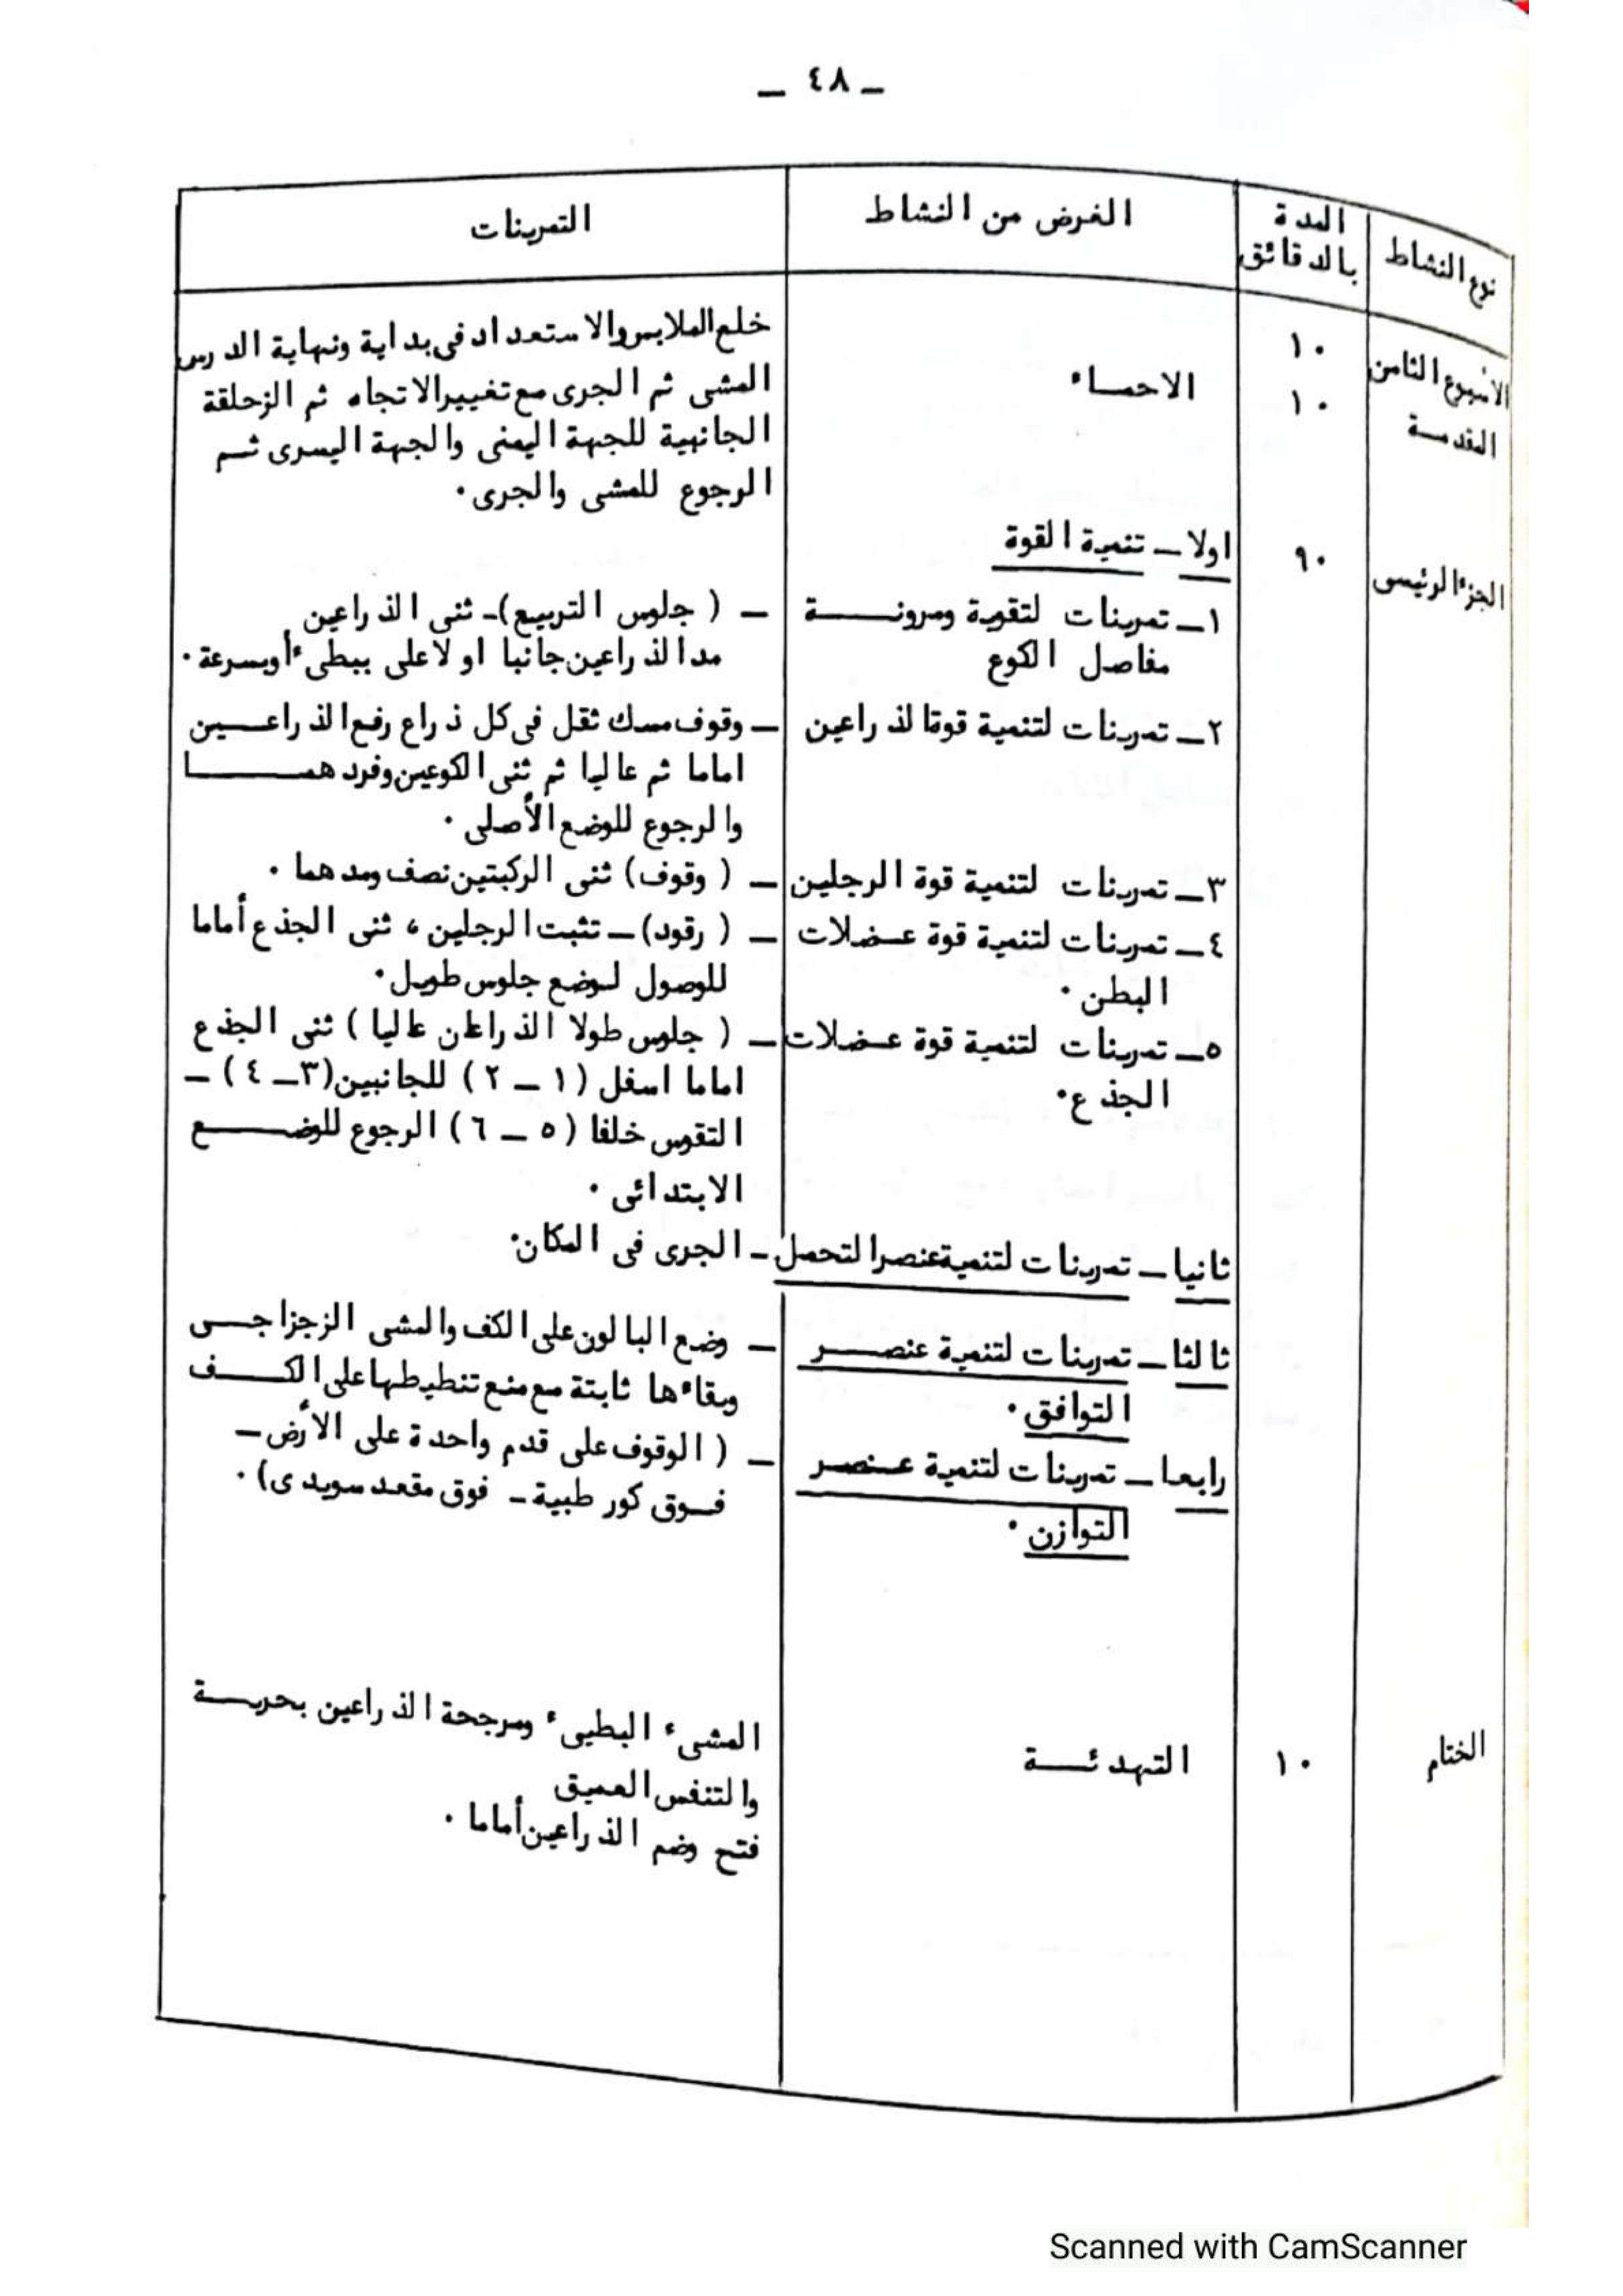 ـ ٤٨ ـ
نوع النشاط
المدة
بالدقائق
الغرض من النشاط
التمرينات
الأسبوع الثامن
١٠
خلع الملابس والاستعداد فى بداية ونهاية الدرس
المقدمــة
١٠
الاحمــاء
المشى ثم الجرى مع تغيير الاتجاه ثم الزحلقة
الجانبية للجهة اليمنى والجهة اليسرى ثــم
الرجوع للمشى والجرى ٠
الجزء الرئيسى
٩٠
اولا ـ تنمية القوة
١ـ تمرينات لتقوية ومرونــــة
مفاصل الكوع
ـ ( جلوس التربيع )ـ ثنى الذراعين
مد الذراعين جانبا او لاعلى ببطىء أو بسرعة ٠
٢ـ تمرينات لتنمية قوة الذراعين
ـ وقوف مسك ثقل فى كل ذراع رفع الذراعــين
اماما ثم عاليا ثم ثنى الكوعين وفردهمــــا
والرجوع للوضع الأصلى ٠
٣ـ تمرينات لتنمية قوة الرجلين
ـ ( وقوف ) ثنى الركبتين نصف ومدهما ٠
٤ـ تمرينات لتنمية قوة عـضلات
البطن ٠
ـ ( رقود ) ـ تثبت الرجلين ، ثنى الجذع أماما
للوصول لوضع جلوس طويل ٠
٥ـ تمرينات لتنمية قوة عـضلات
الجذع ٠
ـ ( جلوس طولا الذراعان عاليا ) ثنى الجذع
اماما اسفل ( ١ ـ ٢ ) للجانبين (٣ـ ٤ ) ـ
التقوس خلفا ( ٥ ـ ٦ ) الرجوع للوضــــع
الابتدائى ٠
ثانيا ـ تمرينات لتنمية عنصر التحمل
ـ الجرى فى المكان ٠
ثالثا ـ تمرينات لتنمية عنصـــر
التوافق ٠
ـ وضع البالون على الكف والمشى الزجزاجــى
وبقاءها ثابتة مع منع تنطيطها على الكــــف
رابعا ـ تمرينات لتنمية عـنصـر
التوازن ٠
ـ ( الوقوف على قدم واحدة على الأرض ـ
فــوق كور طبية ـ فوق مقعد سويدى ) ٠
الختام
١٠
التهدئـــة
المشىء البطيىء ومرجحة الذراعين بحريــة
والتنفس العميق
فتح وضم الذراعين أماما ٠
Scanned with CamScanner